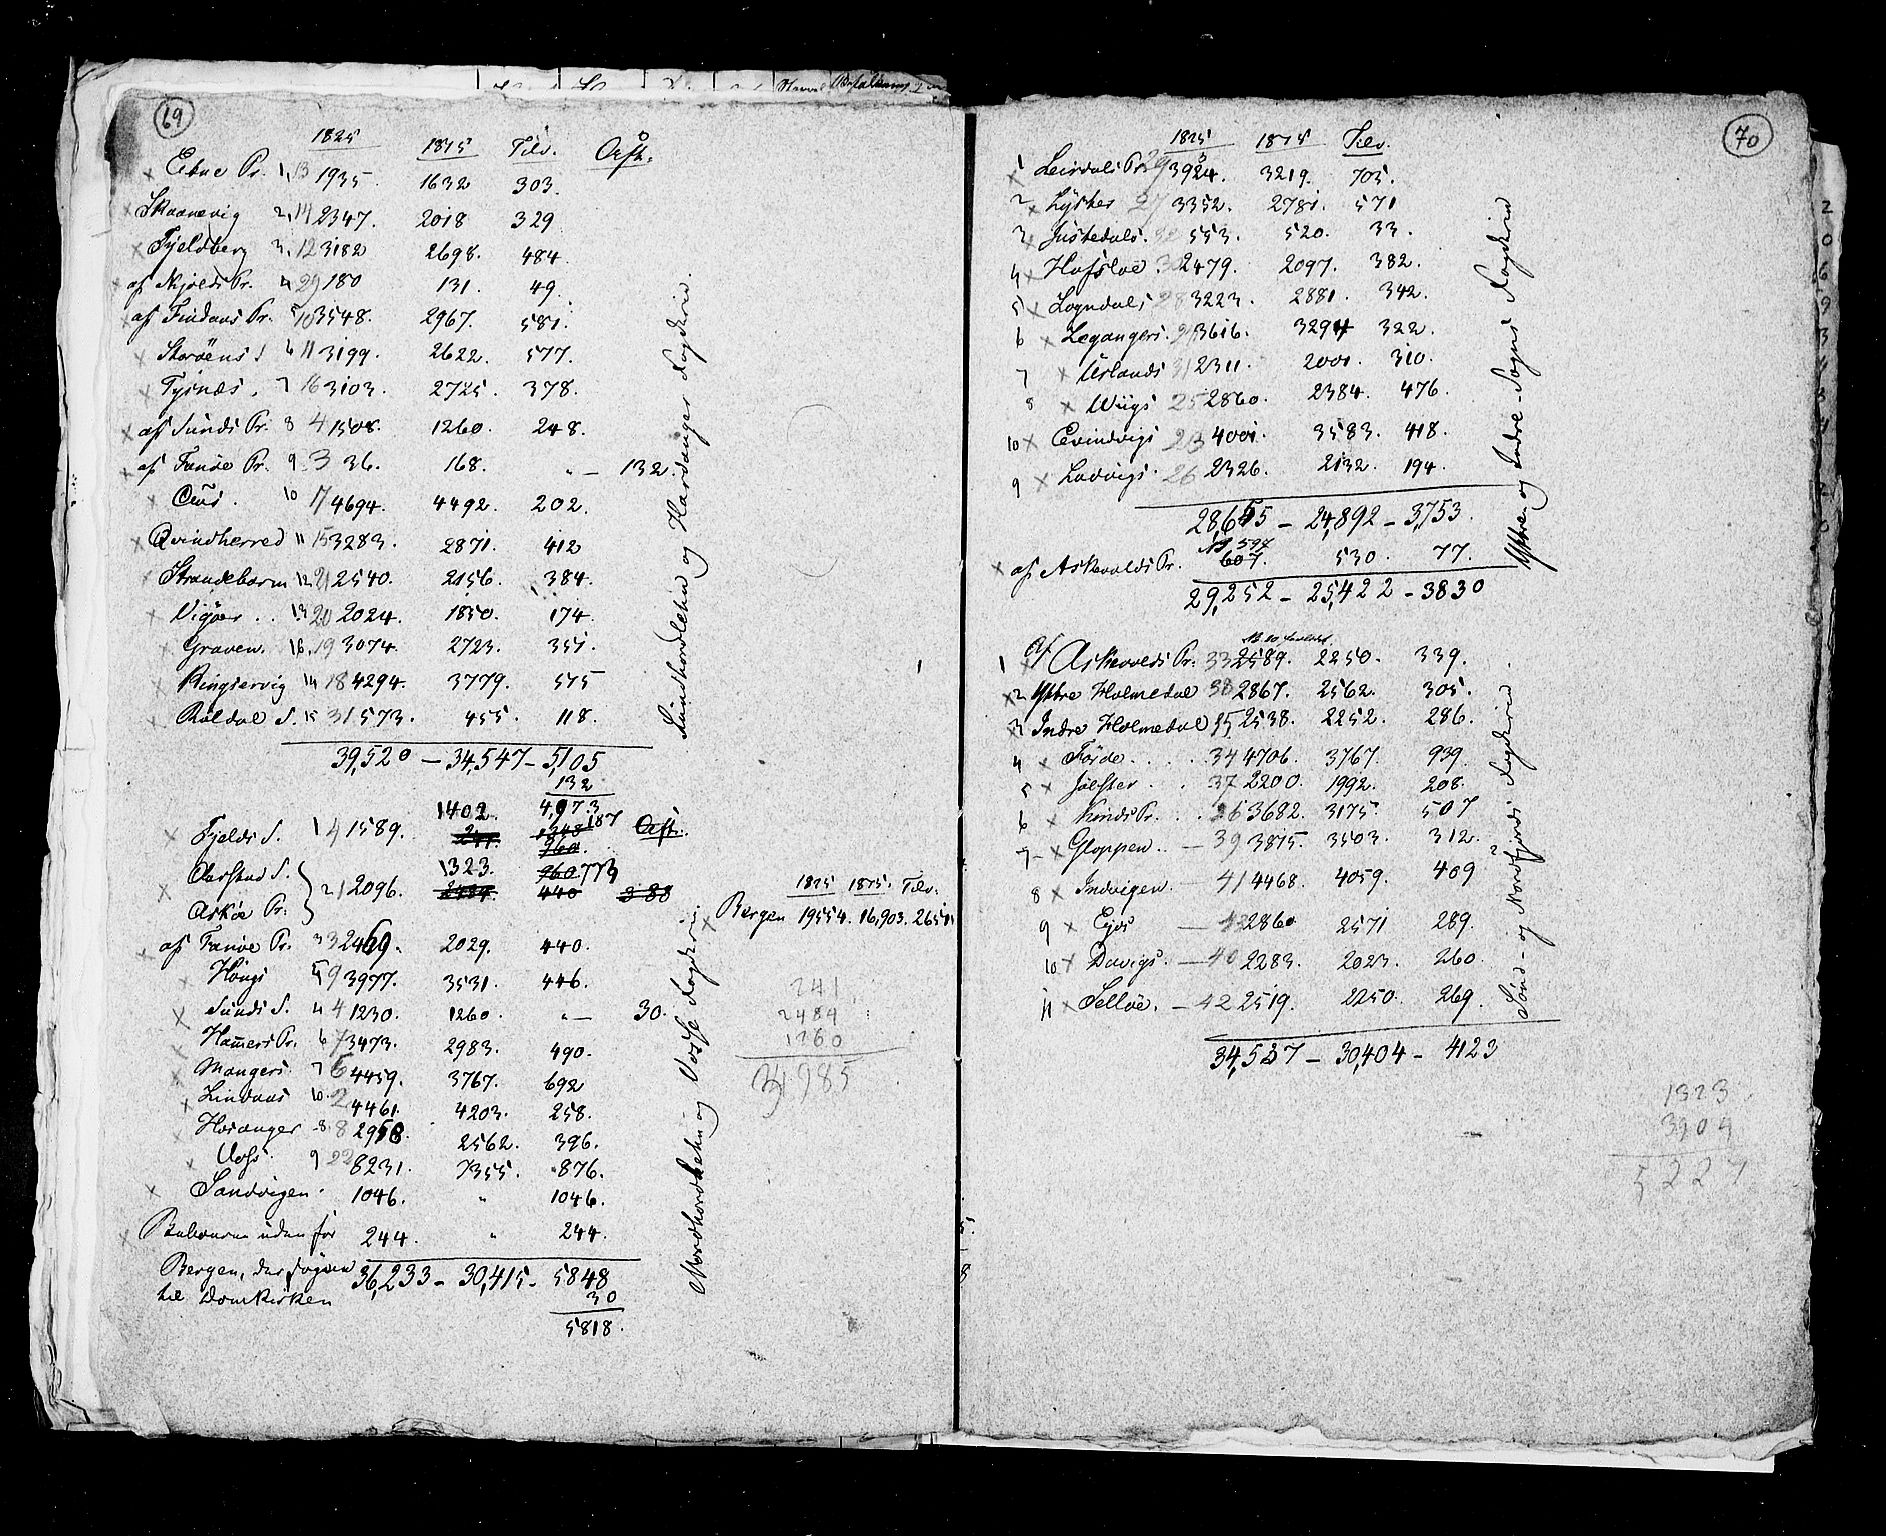 69
1825 1815 Tilv. Oefh.
× Etne Pr. 1, 13 1935. 1632 303.
× Skaanevig 2, 14 2347. 2018 329
× Fjeldberg 3. 12 3182 2698. 484.
× af Skjolds Pr. 4 29 180 131. 49.
× af Findaas Pr. 5 10 3548. 2967. 581.
× Storöens S 6 11 3199. 2622. 577.
× Tysnæs. 7 16 3103. 2725. 378.
× af Sunds Pr. 8 4 1508. 1260. 248.
× af Fanöe Pr. 9 3 36. 168. „ — 132.
× Ous. 10 17 4694. 4492. 202.
× Qvindherred 11 15 3283. 2871. 412
× Strandebarm 12 21 2540. 2156. 384.
× Vigöer .. 13 20 2024. 1850. 174.
× Graven. 16. 19 3074. 2723. 351.
× Kingservig 14 18 4294. 3779. 515
× Röldal S. 15 31 573. 455. 118.
39,520 — 34,547 — 5,105
132
4,973
Sundhordlehn og Hardanger Fogderie
× Fjelds S. 1 4 1589. 1402. 187 Oefh.
Aarstad S.
× Asköe Pr. 2 1 2096. 1323. 773
× af Fanöe Pr. 3 3 2469. 2029. 440.
× Hougs 5 9 3977. 3531. 446.
× Sunds S. 4 4 1230. 1260. „ — 30.
× Hamers Pr. 6 7 3473. 2983. 490.
× Mangers 7 6 4459. 3767. 692
× Lindaas 10. 2 4461. 4203. 258.
× Hosanger 8. 8 2958. 2562. 396.
× Voss. 9 22 8231. 7355. 876.
× Sandvigen. 1046. „ 1046.
× Beboerne uden for 244. „ 244.
Bergen, der søgen
til Domkirken
36,233 — 30,415 — 5848
30
5818.
Nordhordlehn og Vosse Fogderi
1825 1815. Tilv.
× Bergen 19554. 16,903. 2651
241
2484
1260
3985
70
1825 1815 Tilv.
1 × Leirdals Pr. 29 3924. 3219. 705.
2 × Lyster 27 3352. 2781. 571
3 × Justedals. 32 553. 520. 33.
4 × Hafsloe 30 2479. 2097. 382.
5 × Sogndals 28 3223. 2881. 342.
6 × Leganger. 3616. 3294 322.
7 × Urlands 31 2311. 2001. 310.
8 × Wiigs 25 2860. 2384. 476.
10 × Evindvigs 23 4001. 3583. 418.
9 × Ladvigs. 26 2326. 2132. 194.
28,645 — 24,892 — 3,753.
594
× af Askevolds Pr. 607. 530. 77.
29,252 — 25,422 — 3830
Yttre og Indre-Sogns Fogderie
1 × af Askevolds Pr. 33 2589. 2250. 339.
× 2 Yttre Holmedal 38 2867. 2562. 305.
× 3 Indre Holmedal 35 2538. 2252. 286.
4 × Förde. . . . 34 4706. 3767. 939.
5 × Jölster . . 37 2200. 1992. 208.
6 × Kinds Pr. . . 36 3682. 3175. 507
7 × Gloppen .. — 39 3815. 3503. 312.
8 × Indvigen. — 41 4468. 4059. 409
9 × Eyds — 43 2860 2571 289.
10 × Davigs. — 40 2283. 2023. 260.
11 × Selløe. — 42 2519. 2250. 269.
34,527 — 30,404 — 4123
Sönd- og Nordfjords Fogderie
1323
3904
5227